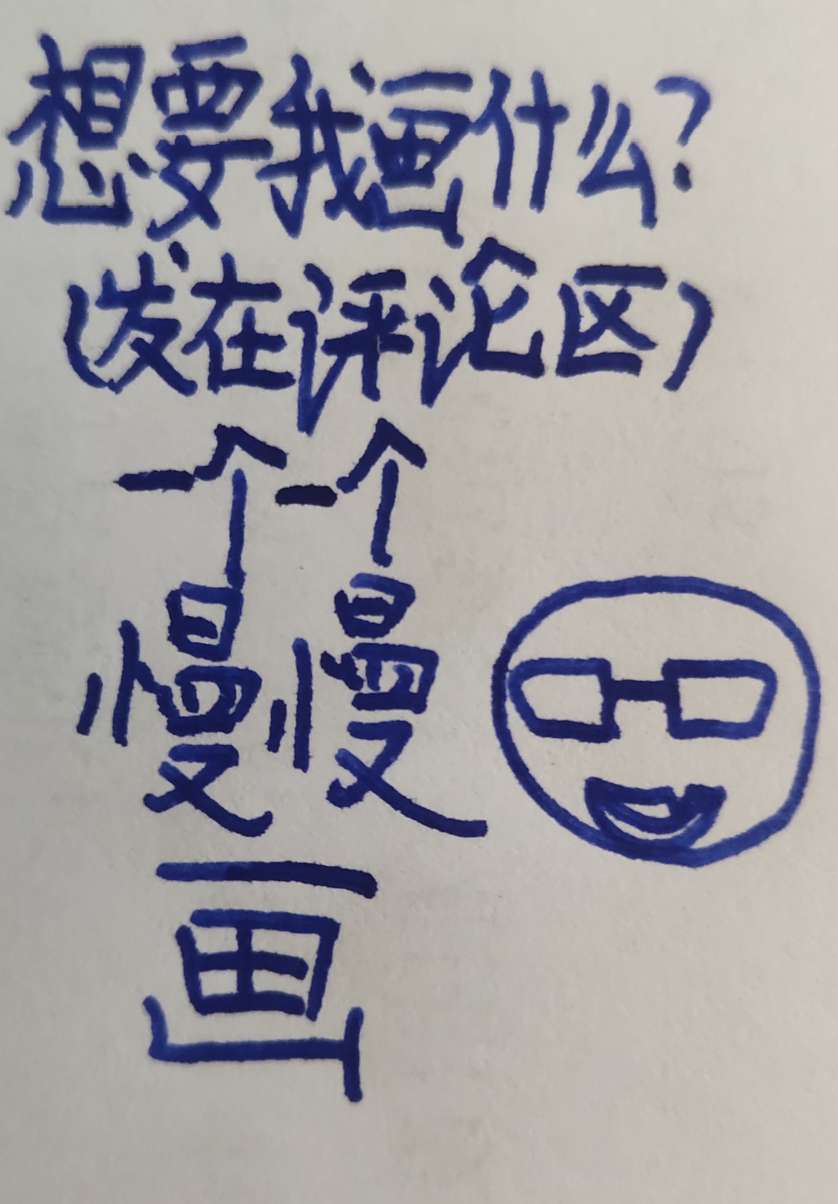 想要我画什么?
(发在评论区)
一个一个
慢慢
画